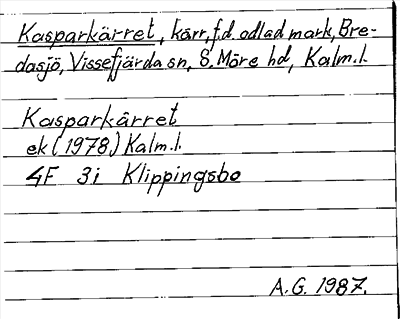 Kasparkärret, kärr, f.d. odlad mark, Bre-
dasjö, Vissefjärda sn, S. Möre hd, Kalm.l.
Kasparkärret
ek (1978) Kalm.l.
4F 3i Klippingsbo
A.G. 1987.